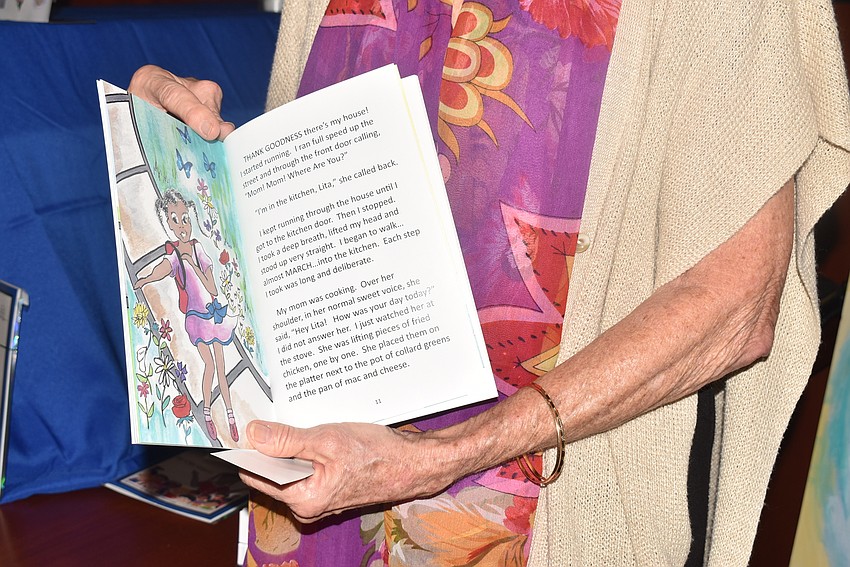 THANK GOODNESS there's my house!
I started running. I ran full speed up the
street and through the front door calling,
"Mom! Mom! Where Are You?"
"I'm in the kitchen, Lita," she called back.
I kept running through the house until I
got to the kitchen door. Then I stopped.
I took a deep breath, lifted my head and
stood up very straight. I began to walk...
almost MARCH...into the kitchen. Each step
I took was long and deliberate.
My mom was cooking. Over her
shoulder, in her normal sweet voice, she
said, "Hey Lita! How was your day today?"
I did not answer her. I just watched her at
the stove. She was lifting pieces of fried
chicken, one by one. She placed them on
the platter next to the pot of collard greens
and the pan of mac and cheese.
11